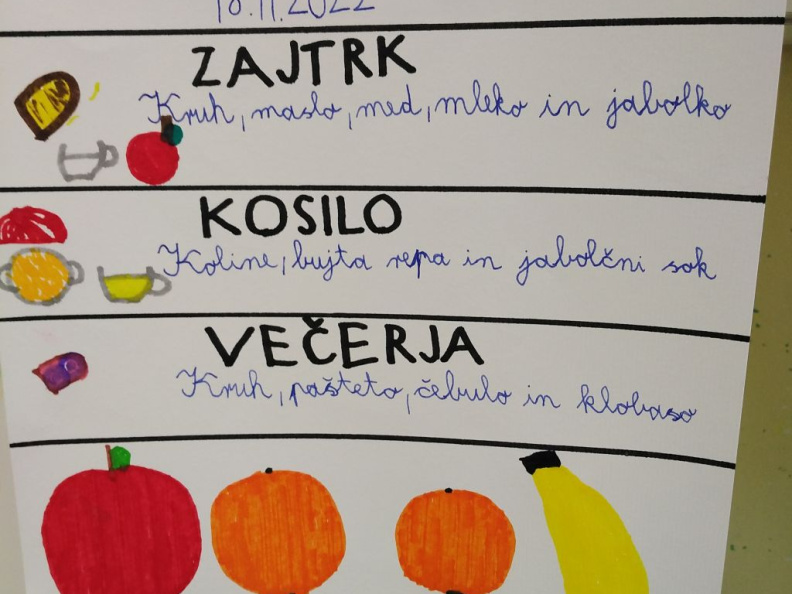 18.11.2022
ZAJTRK
Kruh, maslo, med, mleko in jabolko
KOSILO
Koline, bujta repa in jabolčni sok
VEČERJA
Kruh, pašteta, čebula in klobasa